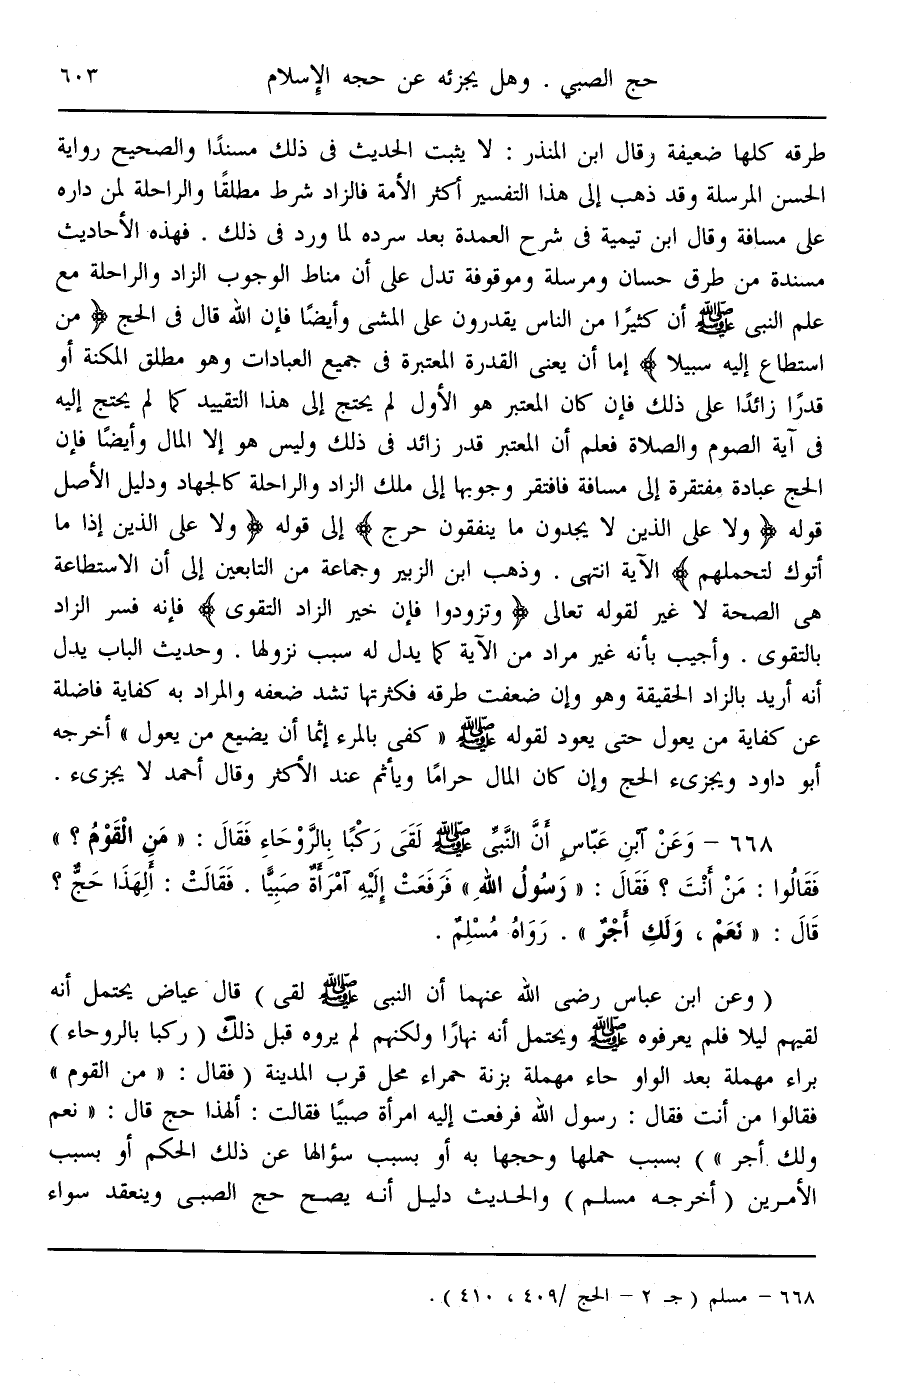 حج الصبي . وهل يجزئه عن حجه الإسلام ٦٠٣
طرقه كلها ضعيفة وقال ابن المنذر : لا يثبت الحديث فى ذلك مسندًا والصحيح رواية
الحسن المرسلة وقد ذهب إلى هذا التفسير أكثر الأمة فالزاد شرط مطلقًا والراحلة لمن داره
على مسافة وقال ابن تيمية فى شرح العمدة بعد سرده لما ورد فى ذلك . فهذه الأحاديث
مسندة من طرق حسان ومرسلة وموقوفة تدل على أن مناط الوجوب الزاد والراحلة مع
علم النبى ﷺ أن كثيرًا من الناس يقدرون على المشى وأيضًا فإن الله قال فى الحج ﴿ من
استطاع إليه سبيلا ﴾ إما أن يعنى القدرة المعتبرة فى جميع العبادات وهو مطلق المكنة أو
قدرًا زائدًا على ذلك فإن كان المعتبر هو الأول لم يحتج إلى هذا التقييد كما لم يحتج إليه
فى آية الصوم والصلاة فعلم أن المعتبر قدر زائد فى ذلك وليس هو إلا المال وأيضًا فإن
الحج عبادة مفتقرة إلى مسافة فافتقر وجوبها إلى ملك الزاد والراحلة كالجهاد ودليل الأصل
قوله ﴿ ولا على الذين لا يجدون ما ينفقون حرج ﴾ إلى قوله ﴿ ولا على الذين إذا ما
أتوك لتحملهم ﴾ الآية انتهى . وذهب ابن الزبير وجماعة من التابعين إلى أن الاستطاعة
هى الصحة لا غير لقوله تعالى ﴿ وتزودوا فإن خير الزاد التقوى ﴾ فإنه فسر الزاد
بالتقوى . وأجيب بأنه غير مراد من الآية كما يدل له سبب نزولها . وحديث الباب يدل
أنه أريد بالزاد الحقيقة وهو وإن ضعفت طرقه فكثرتها تشد ضعفه والمراد به كفاية فاضلة
عن كفاية من يعول حتى يعود لقوله ﷺ « كفى بالمرء إثما أن يضيع من يعول » أخرجه
أبو داود ويجزىء الحج وإن كان المال حرامًا ويأثم عند الأكثر وقال أحمد لا يجزىء .
٦٦٨ – وَعَنْ آبْنِ عَبّاسٍ أَنَّ النَّبِّى ﷺ لَقَىَ رَكْبًا بِالرَّوْحَاءِ فَقَالَ : « مَنِ الْقَوْمُ ؟ »
فَقَالُوا : مَنْ أَنْتَ ؟ فَقَالَ : « رَسُولُ اللهِ » فَرَفَعَتْ إِلَيْهِ آمْرَأَةٌ صَبِيًّا . فَقَالَتْ : أَلِهَذَا حَجٌّ ؟
قَالَ : « نَعَمْ ، وَلَكِ أَجْرٌ » . رَوَاهُ مُسْلِمٌ .
( وعن ابن عباس رضى الله عنهما أن النبى ﷺ لقى ) قال عياض يحتمل أنه
لقيهم ليلا فلم يعرفوه ﷺ ويحتمل أنه نهارًا ولكنهم لم يروه قبل ذلك ( ركبا بالروحاء )
براء مهملة بعد الواو حاء مهملة بزنة حمراء محل قرب المدينة ( فقال : « من القوم »
فقالوا من أنت فقال : رسول الله فرفعت إليه امرأة صبيًا فقالت : ألهذا حج قال : « نعم
ولك أجر » ) بسبب حملها وحجها به أو بسبب سؤالها عن ذلك الحكم أو بسبب
الأمرين ( أخرجه مسلم ) والحديث دليل أنه يصح حج الصبى وينعقد سواء
٦٦٨ – مسلم ( جـ ٢ – الحج /٤٠٩ ، ٤١٠ ) .